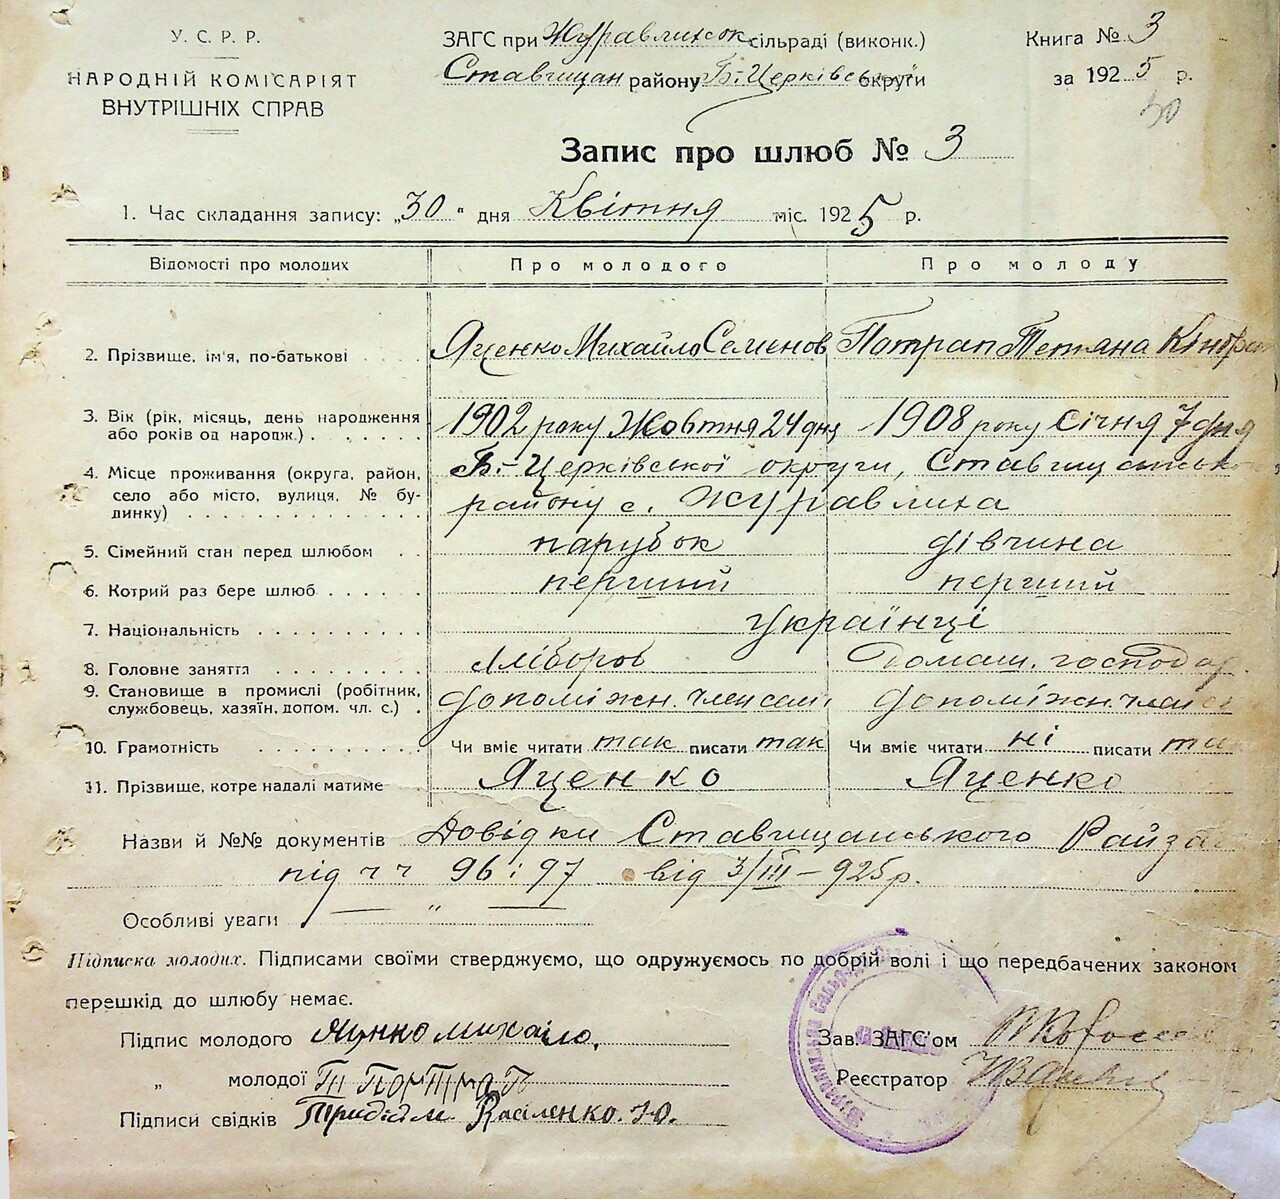 У. С. Р. Р.
НАРОДНІЙ КОМІСАРІЯТ
ВНУТРІШНІХ СПРАВ
ЗАГС при Журавлихск сільраді (виконк.)
Ставищан району Б.-Церківської округи
Книга № 3
за 1925 р.
50
Запис про шлюб № 3
1. Час складання запису: „30" дня Квітня міс. 1925 р.
Відомості про молодих Про молодого Про молоду
2. Прізвище, ім'я, по-батькові . . . . Яценко Михайло Семенов Потрап Тетяна
3. Вік (рік, місяць, день народження або років од народж.) . . . . . . 1902 року Жовтня 24 дня 1908 року Січня 7 дня
4. Місце проживання (округа, район, село або місто, вулиця, № будинку) . . . . Б.-Церківської округи, Ставищанськ
району с. Журавлиха
5. Сімейний стан перед шлюбом . . парубок дівчина
6. Котрий раз бере шлюб . . . . . перший перший
7. Національність . . . . . . . . українці
8. Головне заняття . . . . . . . . хлібороб Домаш. господар
9. Становище в промислі (робітник, службовець, хазяїн, допом. чл. с.) . допоміжн. член сем. допоміжн. член с
10. Грамотність . . . . . . . . Чи вміє читати так писати так Чи вміє читати ні писати
11. Прізвище, котре надалі матиме Яценко Яценко
Назви й №№ документів Довідки Ставищанського Райза
під ч ч 96 і 97 від 3/III – 925 р.
Особливі уваги — „ —
Підписка молодих. Підписами своїми стверджуємо, що одружуємось по добрій волі і що передбачених законом
перешкід до шлюбу немає.
Підпис молодого Яценко михайло.
„ молодої
Підписи свідків Василенко. Ю.
Зав. ЗАГС'ом
Реєстратор